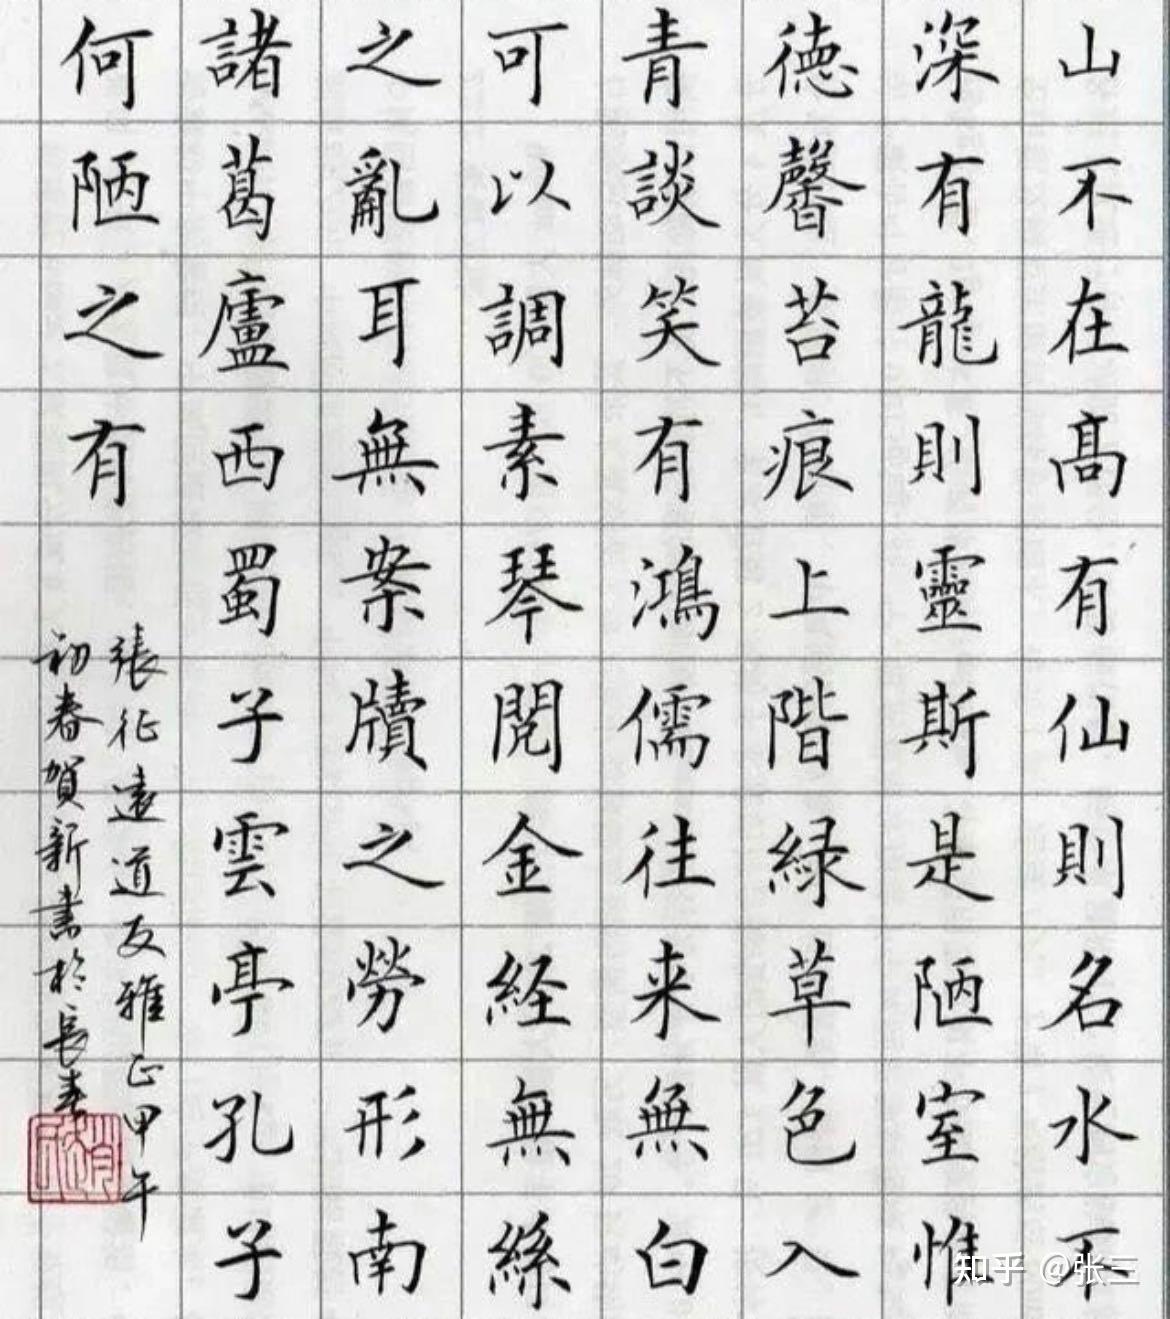 山不在髙有仙則名水不
深有龍則靈斯是陋室惟
德馨苔痕上階緑草色入
青談笑有鴻儒往来無白
可以調素琴閲金経無絲
之亂耳無案牘之勞形南
諸葛廬西蜀子雲亭孔子
何陋之有
張征遠道友雅正甲午
初春賀新書於長春
知乎 @张三